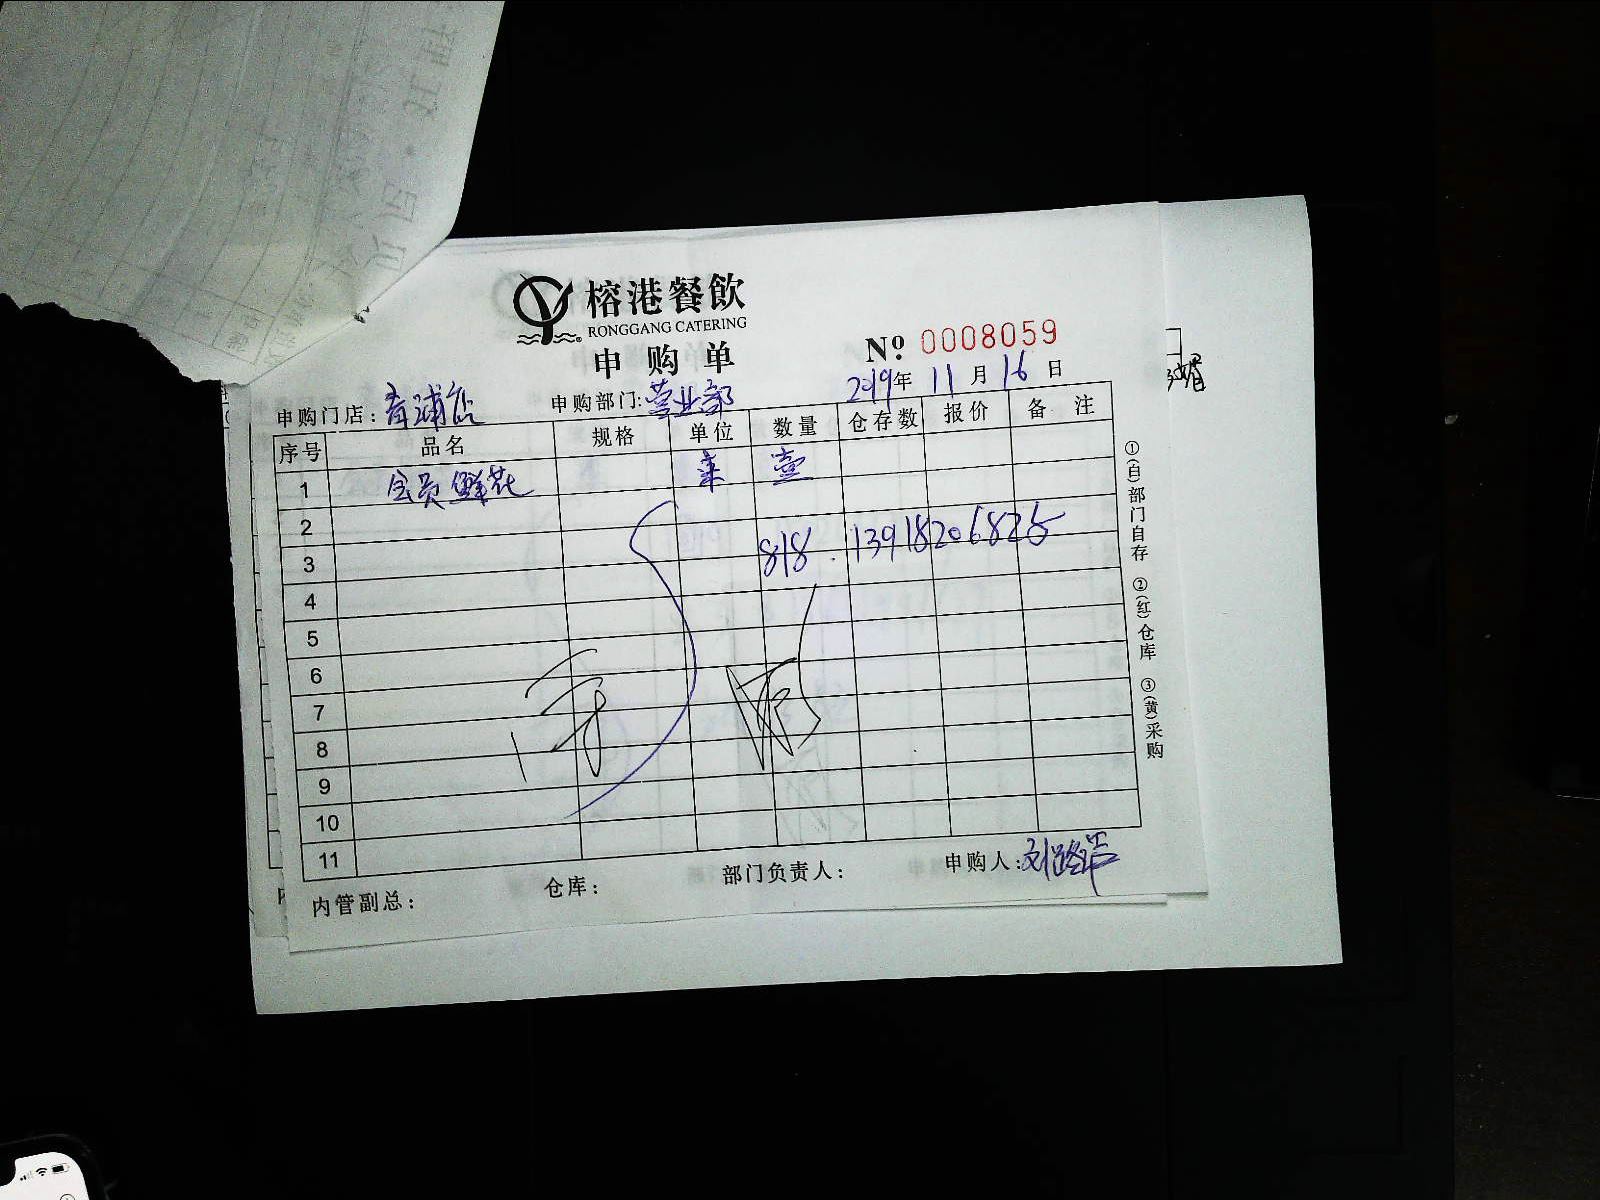 榕港餐飲
RONGGANG CATERING
申购单
Nº: 0008059
2019年 11月 16日
申购门店：青浦店 申购部门：营业部
序号 品名 规格 单位 数量 仓存数 报价 备注
1 会员鲜花 束 壹
2
3 818. 13918206825
4
5
6
7
8
9
10
11
内管副总： 仓库： 部门负责人： 申购人：
①(白)部门自存 ②(红)仓库 ③(黄)采购